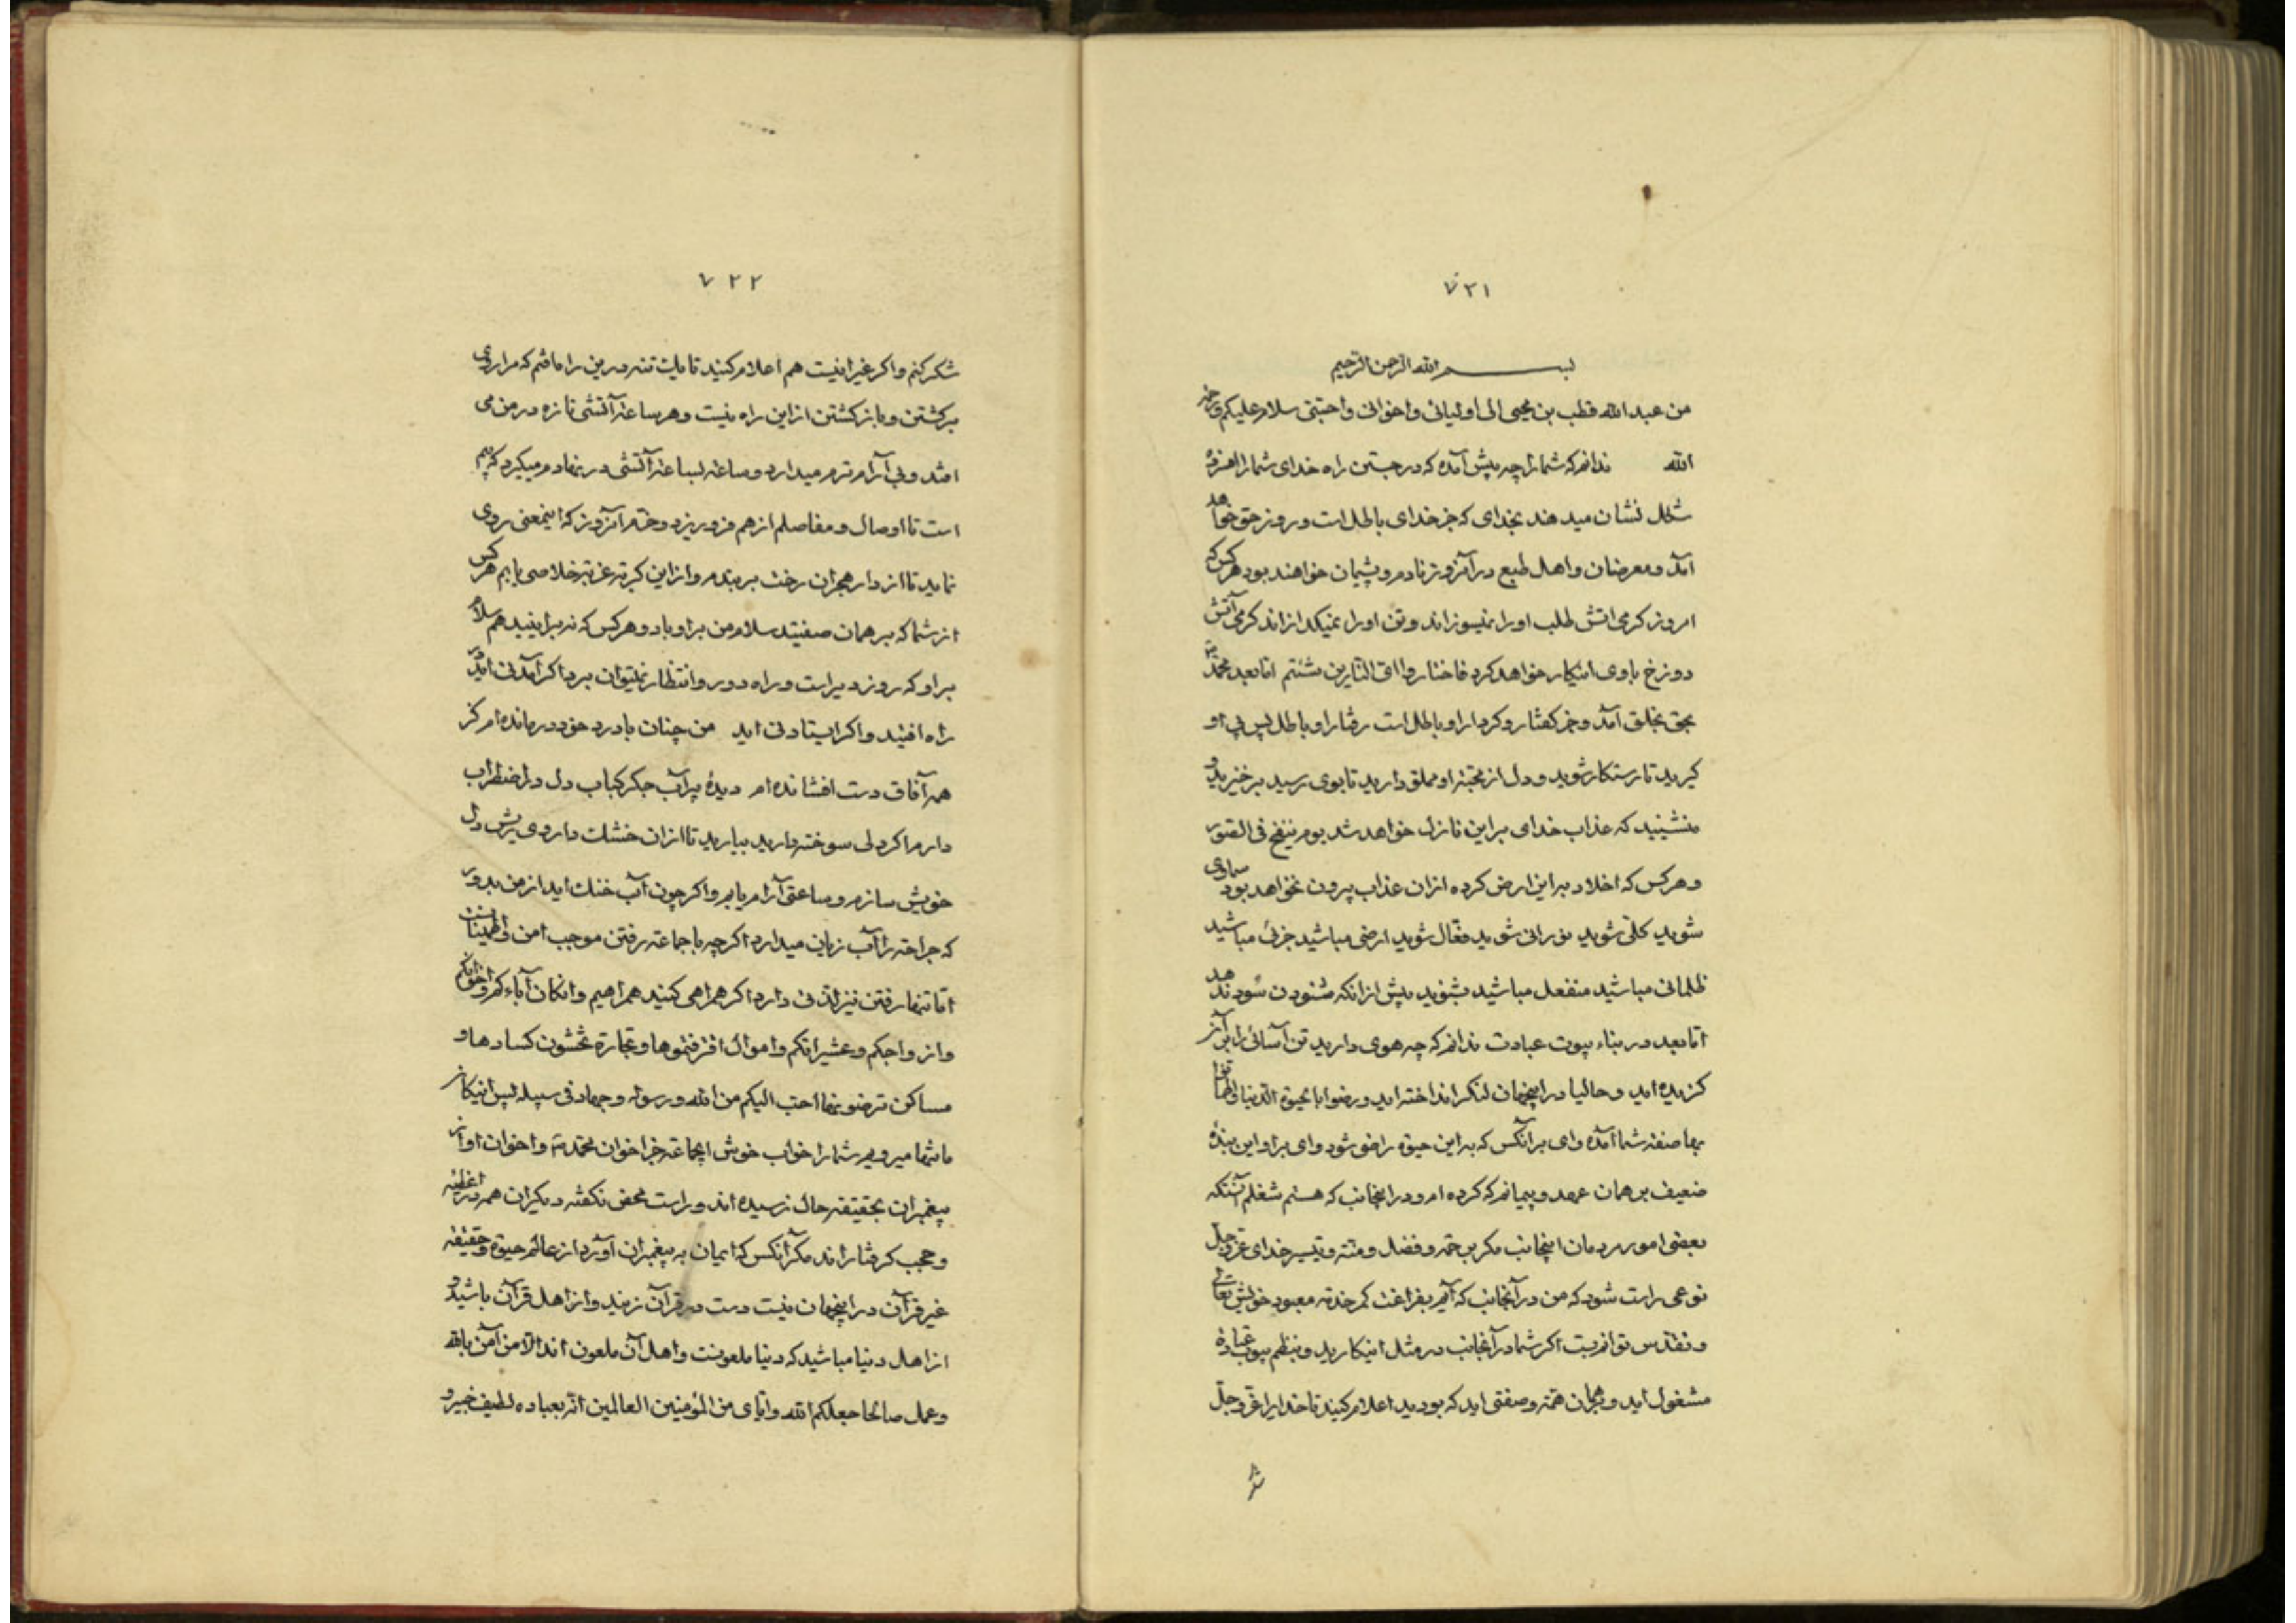 ۷۲۱
بسم الله الرحمن الرحیم
من عبد الله قطب بن محیی الی اولیائی و اخوانی و احبتی سلام علیکم و رحمة
الله ندانم که شما را چه پیش آمده که در جستن راه خدای شما را
شکل نشان میدهند بخدای که جز خدای باطل است و روز حق خواهد
آمد و معرضان و اهل طبع در آنروز نادم و پشیمان خواهند بود هر کس که
امروز گرمی اتش طلب او را نمیسوزاند و تن او را نمیگدازاند گرمی آتش
دوزخ با وی اینکار خواهد کرد فاختاروا ای النارین شئتم اما بعد محمد
بحق بخلق آمد و جز گفتار و کردار او باطل است رفتار او باطل پس پی او
گیرید تا رستگار شوید و دل از محبته او مملو دارید تا بوی رسید برخیزید و
منشینید که عذاب خدای براین نازل خواهد شد یوم ینفخ فی الصور
و هر کس که اخلاد براین ارض کرده از ان عذاب بیرون نخواهد بود سماوی
شوید کلی شوید نورانی شوید فعال شوید ارضی مباشید جزئی مباشید
ظلمانی مباشید منفعل مباشید بشنوید پیش ازانکه شنودن سود ندهد
اما بعد در بناء بیوت عبادت ندانم که چه هوی دارید تن آسانی را بر آن
گزیده اید و حالیا در اینجهان لنگر انداخته اید و رضوا بالحیوة الدنیا و اطمانوا
بها صفته شما آمده وای بر آنکس که به این حیوة راضی شود وای بر او این بنده
ضعیف بر همان عهد و پیمانم که کرده ام و در اینجانب که هستم شغلم آنستکه
بعضی امور مردمان اینجانب مگر برحمته و فضل و منته و تیسیر خدای عز و جل
نوعی راست شود که من در آنجانب که آیم بفراغت کمر خدمته معبود خویش تعالی
و تقدس توانم بست اگر شما در آنجانب در مثل اینکارید و بنظم بیوت عبادة
مشغول اید و بهمان همته و صفتی اید که بودید اعلام کنید تا خدایرا عز و جل
شکر
۷۲۲
شکر کنم و اگر غیر اینست هم اعلام کنید تا یک تنه در این راه افتم که مرا روی
برگشتن و باز گشتن از این راه نیست و هر ساعته آتشی تازه در من می
افتد و بی آرام ترم میدارد و ساعته بساعته آتشی در نهادم میگیرد که بیم
است تا اوصال و مفاصلم از هم فرو ریزد و خرم آنروز که اینمعنی روی
نماید تا از دار هجران رخت بربندم و از این کربته غربته خلاصی یابم هر کس
از شما که بر همان صفتید سلام من بر او باد و هر کس که نه بر اینید هم سلام
بر او که روز دیر است و راه دور و انتظار نمیتوان برد اگر آمدنی اید در
راه افتید و اگر ایستادنی اید من چنان با درد خود درمانده ام کز
همه آفاق دست افشانده ام دیدۀ پر آب جگر کباب دل در اضطراب
دارم اگر دلی سوخته دارید بیارید تا ازان خشک داروی ریش دل
خویش سازم و ساعتی آرام یابم و اگر چون آب خنک اید از من بدور
که جراحته را آب زیان میدارد اگر چه با جماعته رفتن موجب امن و اطمینانست
اما تنها رفتن نیز لذتی دارد اگر همراهی کنید همراهیم و ان کان آباءکم و اخوانکم
و ازواجکم و عشیراتکم و اموال اقترفتموها و تجارة تخشون کسادها و
مساکن ترضونها احب الیکم من الله و رسوله و جهاد فی سبیله پس اینکار
ما تنها میرویم شما را خواب خوش ایجماعته جز اخوان محمد و اخوان او از
پیغمبران بحقیقته حال نرسیده اند و راست محض نگفته دیگران همه در اغطیه
و حجب گرفتار اند مگر آنکس که ایمان به پیغمبران آورد از عالم حیوة و حقیقته
غیر قرآن در اینجهان نیست دست در قرآن زنید و از اهل قرآن باشید و
از اهل دنیا مباشید که دنیا ملعونست و اهل آن ملعون اند الا من آمن بالله
و عمل صالحا جعلکم الله و ایای من المؤمنین العالمین انه بعباده لطیف خبیر و